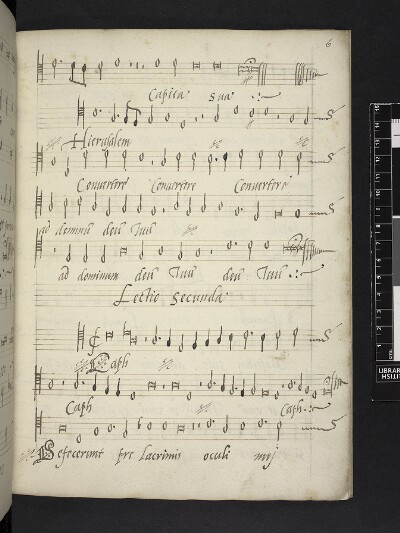 6
Capita sua
Hierusalem
Convertere Convertere Convertere
ad dominũ deũ Tuũ
ad dominum deũ Tuũ deũ Tuũ
Lectio Secunda
Caph
Caph Caph
Defecerunt pre lacrimis oculi mij